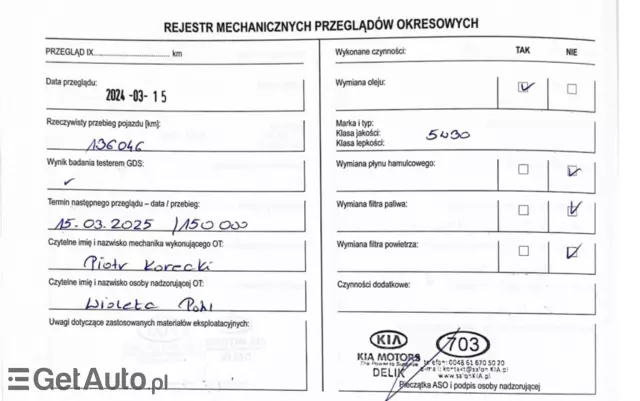 REJESTR MECHANICZNYCH PRZEGLĄDÓW OKRESOWYCH
PRZEGLĄD IX........................... km
Data przeglądu:
2024 -03- 15
Rzeczywisty przebieg pojazdu [km]:
136046
Wynik badania testerem GDS:
Termin następnego przeglądu – data / przebieg:
15.03.2025 /150 000
Czytelne imię i nazwisko mechanika wykonującego OT:
Piotr Korecki
Czytelne imię i nazwisko osoby nadzorującej OT:
Wioleta Pohl
Uwagi dotyczące zastosowanych materiałów eksploatacyjnych:
Wykonane czynności: TAK NIE
Wymiana oleju:
Marka i typ:
Klasa jakości: 5W30
Klasa lepkości:
Wymiana płynu hamulcowego:
Wymiana filtra paliwa:
Wymiana filtra powietrza:
Czynności dodatkowe:
KIA 703
KIA MOTORS
The Power to Surprise
DELIK
telefon: 0048 61 670 50 20
e-mail: kontakt@salonKIA.pl
www.salonKIA.pl
Pieczątka ASO i podpis osoby nadzorującej
GetAuto.pl